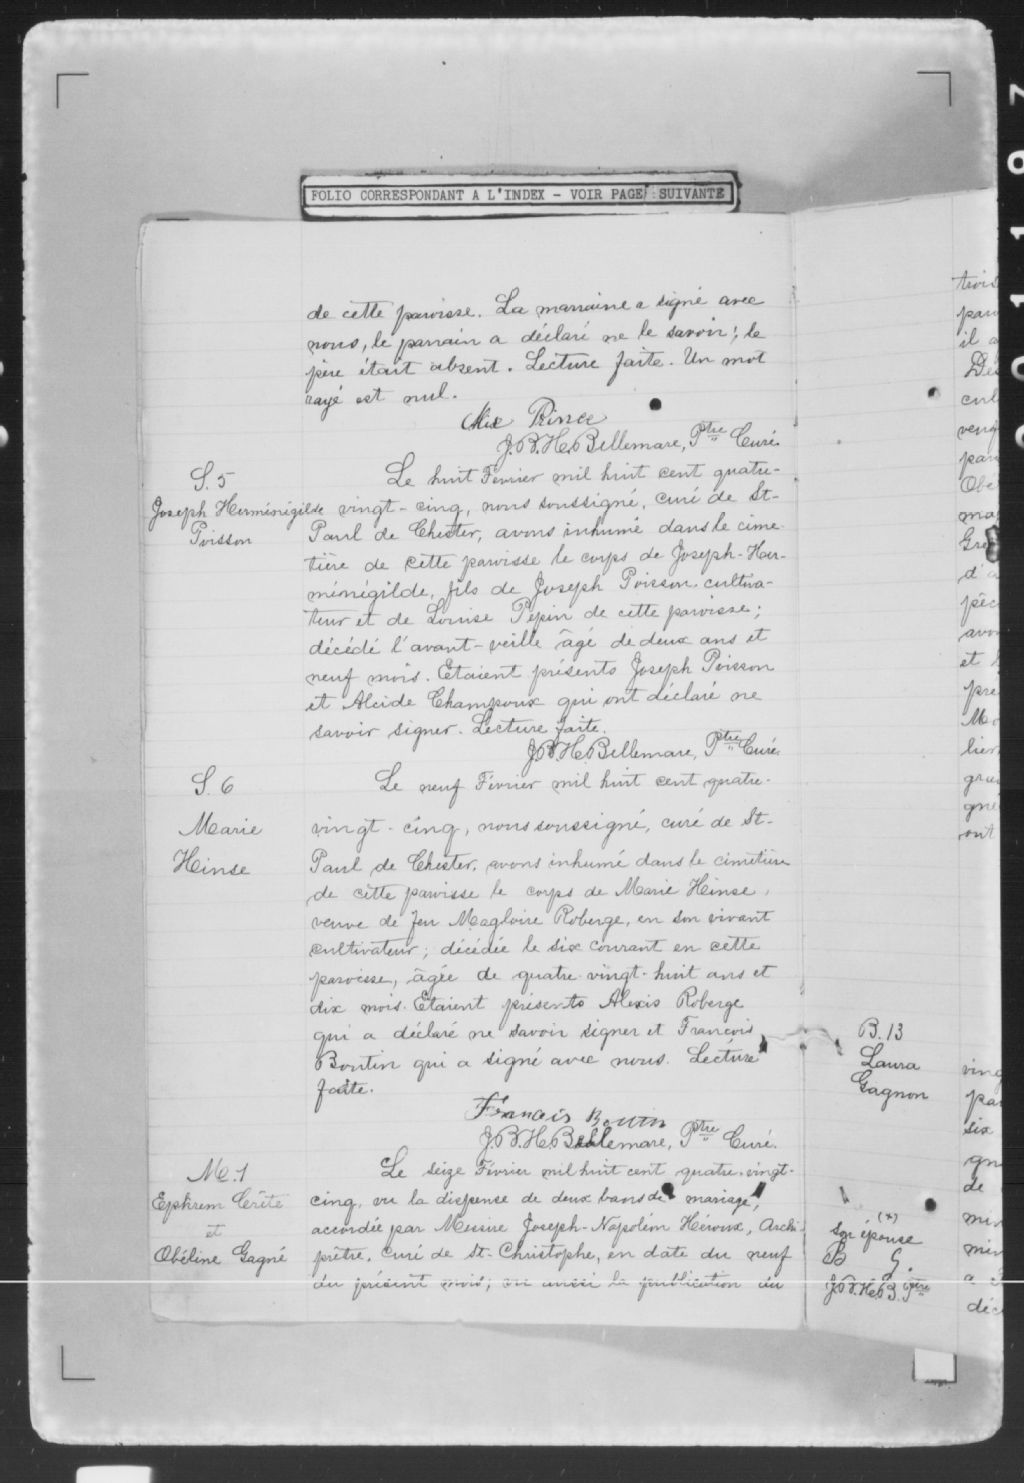 FOLIO CORRESPONDANT A L'INDEX - VOIR PAGE SUIVANTE
de cette paroisse. La marraine a signé avec
nous, le parrain a déclaré ne le savoir; le
père était absent. Lecture faite. Un mot
rayé est nul.
Alix Prince
J.B.H. Bellemare, Ptre Curé.
S. 5
Joseph Herménégilde
Poisson
Le huit Février mil huit cent quatre-
vingt-cinq, nous soussigné, curé de St-
Paul de Chester, avons inhumé dans le cime-
tière de cette paroisse le corps de Joseph-Her-
ménégilde, fils de Joseph Poisson cultiva-
teur et de Louise Pépin de cette paroisse;
décédé l'avant-veille âgé de deux ans et
neuf mois. Etaient présents Joseph Poisson
et Alcide Champoux qui ont déclaré ne
savoir signer. Lecture faite.
J.B.H. Bellemare, Ptre Curé.
S. 6
Marie
Hinse
Le neuf Février mil huit cent quatre-
vingt-cinq, nous soussigné, curé de St-
Paul de Chester, avons inhumé dans le cimetière
de cette paroisse le corps de Marie Hinse,
veuve de feu Magloire Roberge, en son vivant
cultivateur; décédée le six courant en cette
paroisse, âgée de quatre-vingt-huit ans et
dix mois. Etaient présents Alexis Roberge
qui a déclaré ne savoir signer et François
Boutin qui a signé avec nous. Lecture
faite.
Francois Boutin
J.B.H. Bellemare, Ptre Curé.
M. 1
Ephrem Crête
et
Obéline Gagné
Le seize Février mil huit cent quatre-vingt-
cinq, vu la dispense de deux bans de mariage,
accordée par Messire Joseph-Napoléon Héroux, Archi-
prêtre, Curé de St-Christophe, en date du neuf
du présent mois; vu aussi la publication du
B. 13
Laura
Gagnon
(x)
son épouse
B G.
J.B.H.B. Ptre
trois
il a
et
ont
six
de